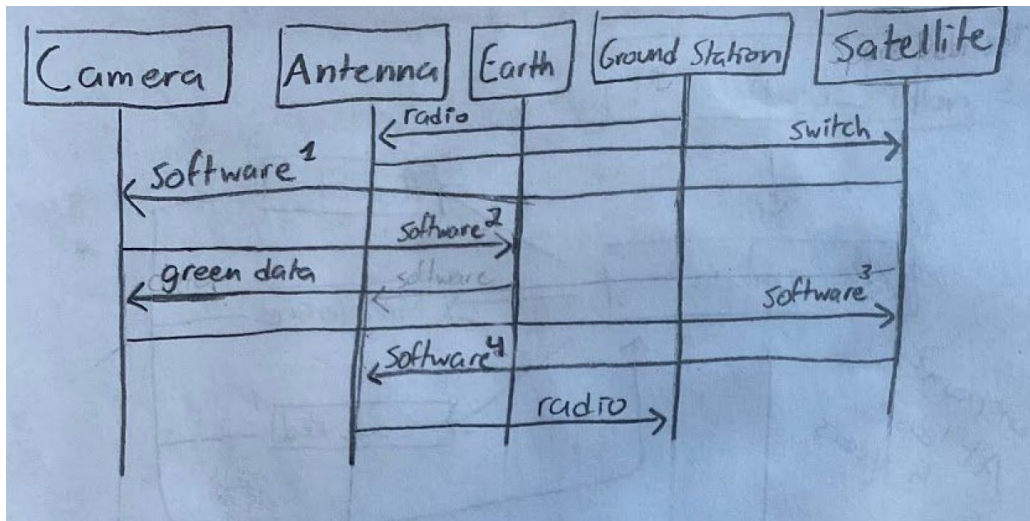 Camera
Antenna
Earth
Ground Station
Satellite
radio
switch
software 1
software 2
green data
software
software 3
software 4
radio